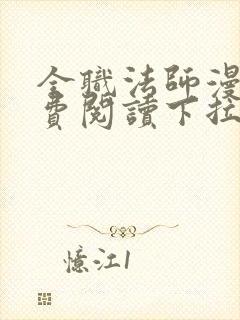 全職法師漫
費閱讀下拉
憶江1